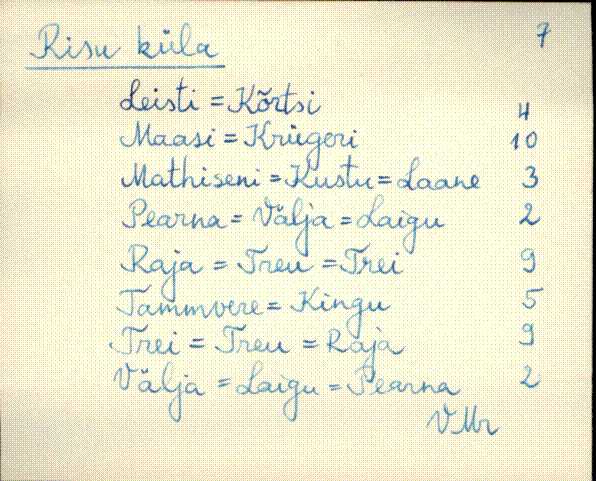 Risu küla 7
Leisti = Kõrtsi 4
Maasi = Krügeri 10
Mathiseni = Kustu = Laane 3
Pearna = Välja = Laigu 2
Raja = Treu = Trei 9
Tammvere = Kingu 5
Trei = Treu = Raja 9
Välja = Laigu = Pearna 2
VMr